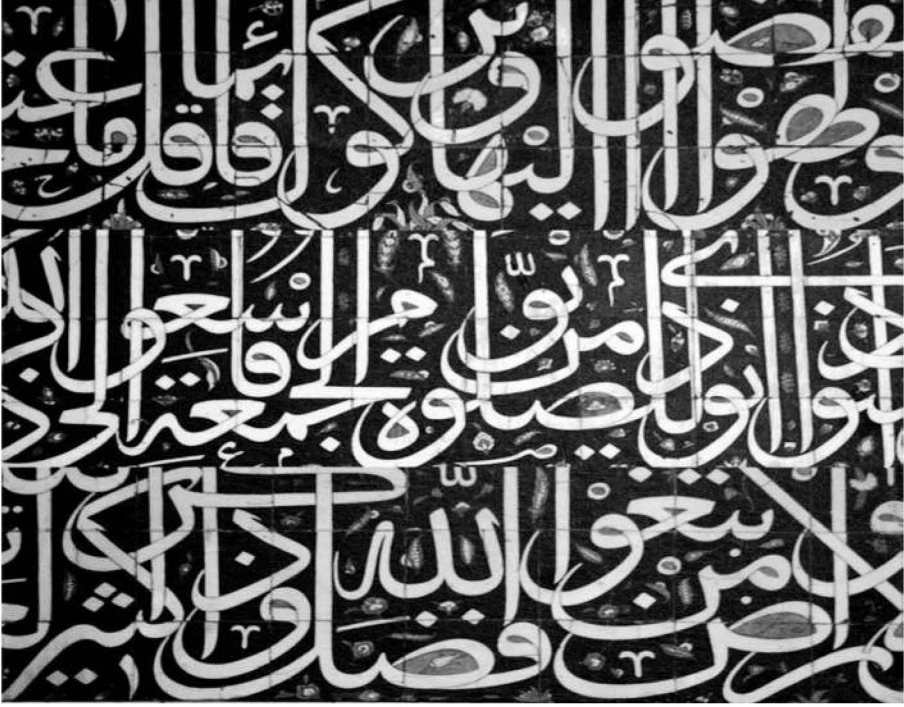 لهوا انفضوا اليها وتركوك قائما قل ما عند
منوا اذا نودي للصلوة من يوم الجمعة فاسعوا الى ذكر
الارض وابتغوا من فضل الله واذكروا كثيرا